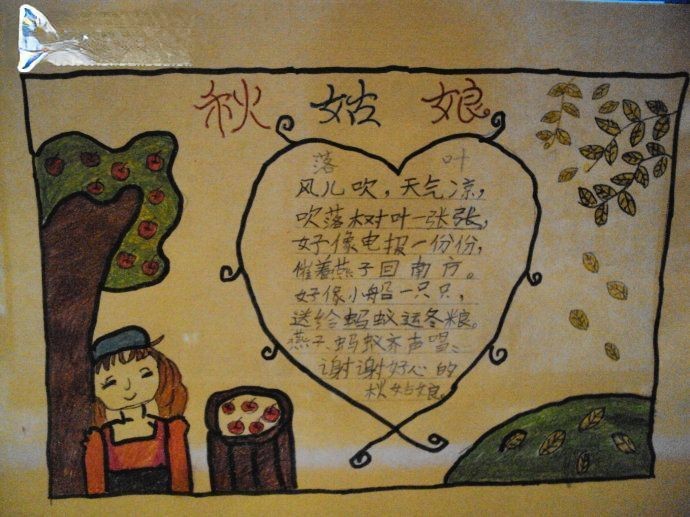 秋姑娘
落叶
风儿吹，天气凉，
吹落树叶一张张，
好像电报一份份，
催着燕子回南方。
好像小船一只只，
送给蚂蚁运冬粮。
燕子、蚂蚁齐声唱：
谢谢好心的
秋姑娘。